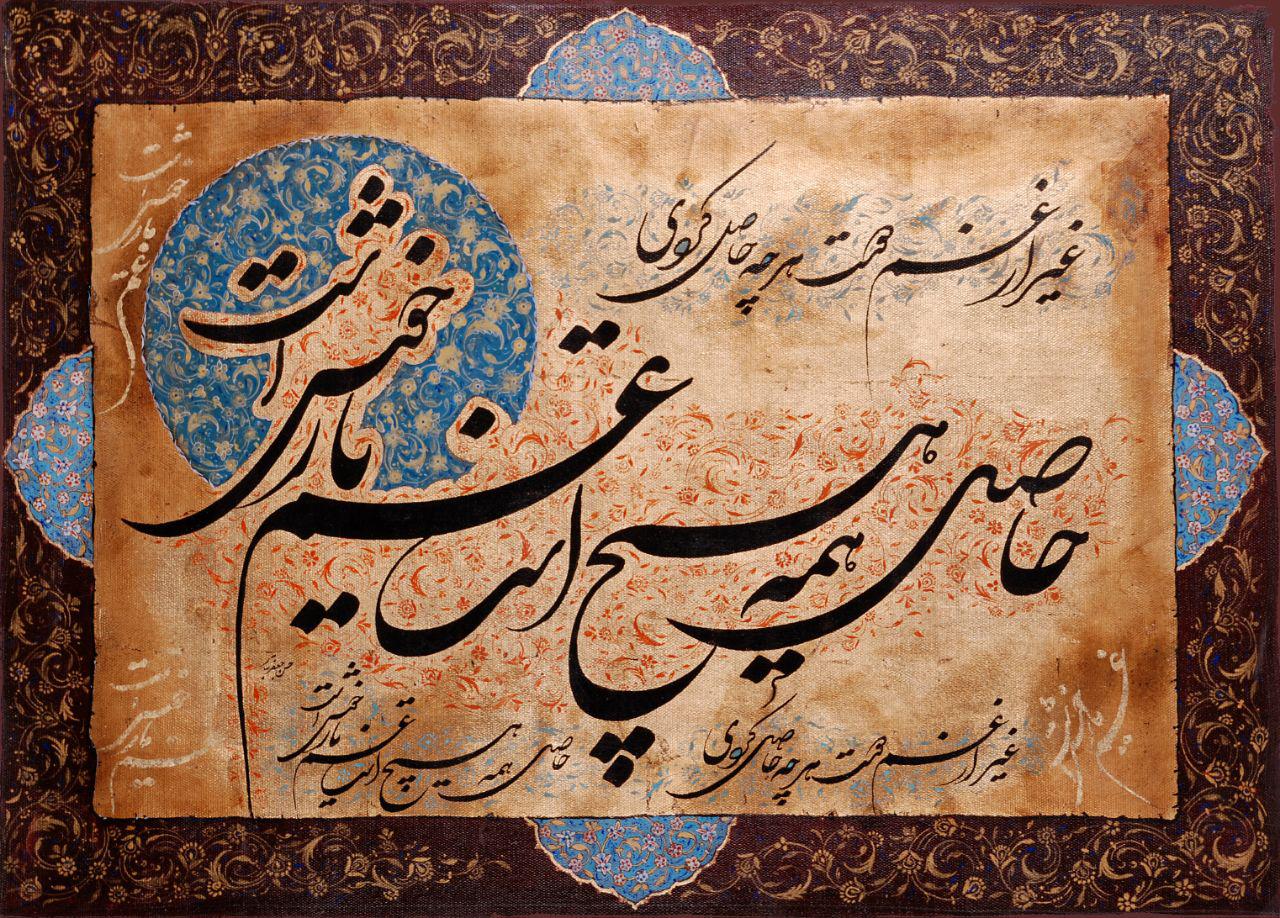 غیر از غم دوست هر چه حاصل کردی
حاصل همه هیچ است غم یار خوش است
غیر از غم دوست هر چه حاصل کردی
حاصل همه هیچ است غم یار خوش است